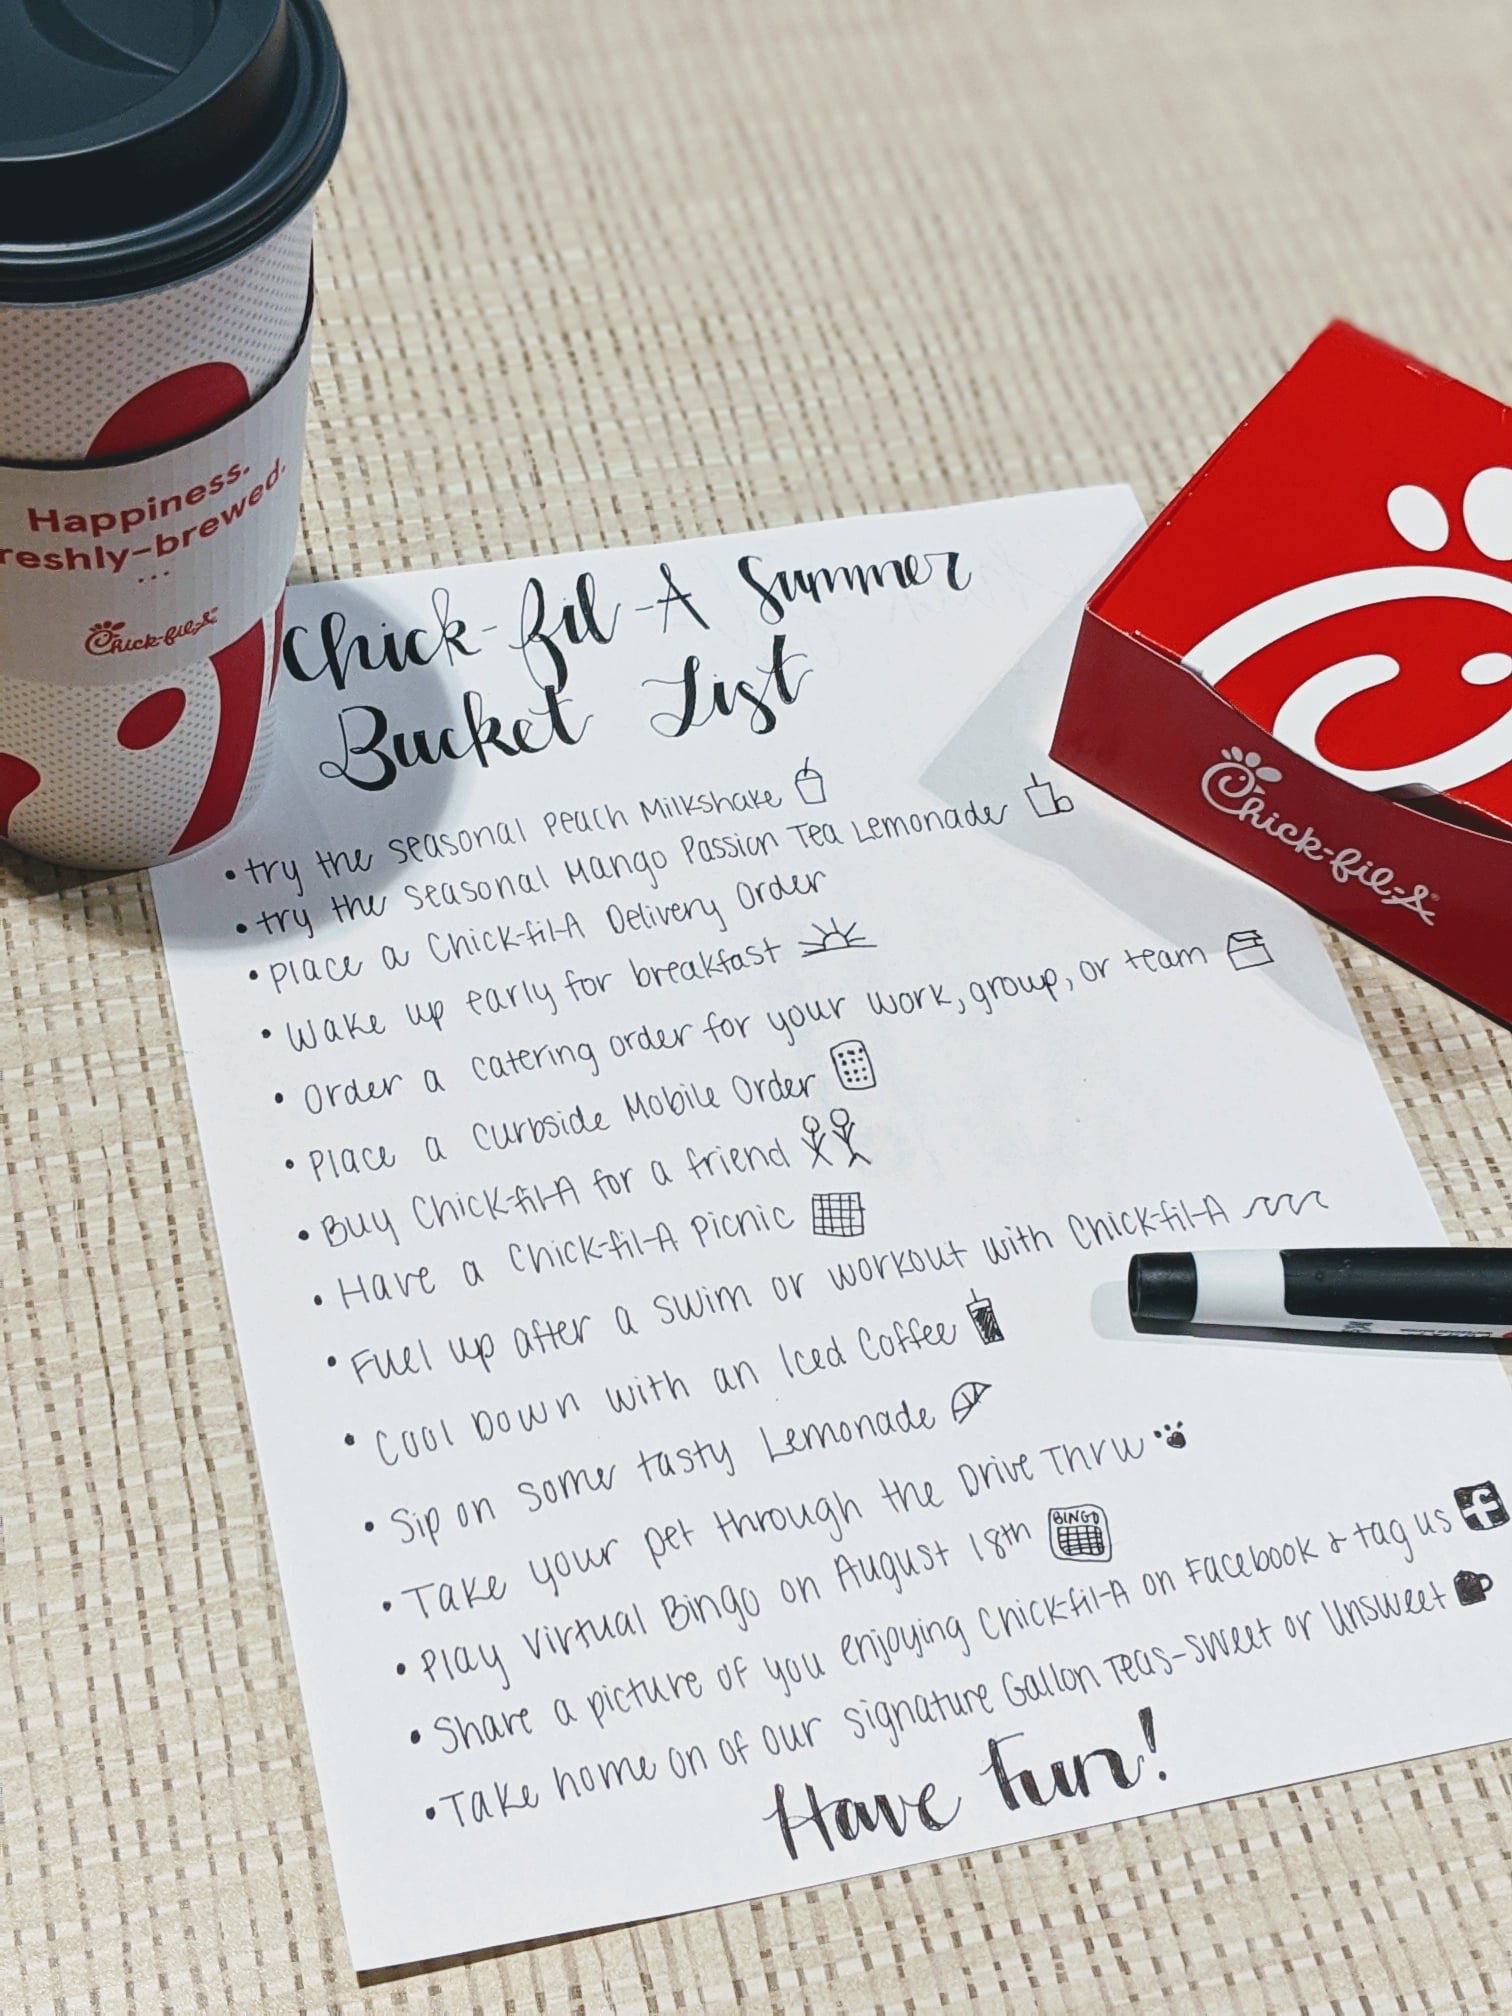 Happiness.
reshly-brewed.
...
Chick-fil-A
Chick-fil-A Summer
Bucket List
• try the seasonal Peach Milkshake
• try the seasonal Mango Passion Tea Lemonade
• Place a Chick-fil-A Delivery Order
• Wake up early for breakfast
• Order a catering order for your work, group, or team
• Place a Curbside Mobile Order
• Buy Chick-fil-A for a friend
• Have a Chick-fil-A Picnic
• Fuel up after a swim or workout with Chick-fil-A
• Cool Down with an Iced Coffee
• Sip on some tasty Lemonade
• Take your pet through the Drive Thru
• Play Virtual Bingo on August 18th BINGO
• Share a picture of you enjoying Chick-fil-A on Facebook & tag us f
• Take home on of our signature Gallon Teas-Sweet or Unsweet
Have Fun!
Chick-fil-A